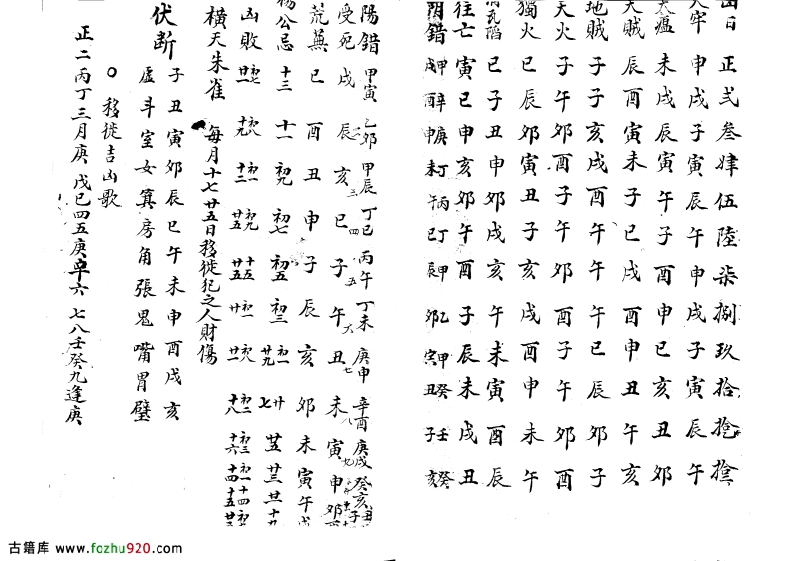 凶日 正 弍 叁 肆 伍 陸 柒 捌 玖 拾
天牢 申 戌 子 寅 辰 午 申 戌 子 寅 辰 午
天瘟 未 戌 辰 寅 午 子 酉 申 巳 亥 丑 卯
天賊 辰 酉 寅 未 子 巳 戌 卯 申 丑 午 亥
地賊 子 子 亥 戌 酉 午 午 午 巳 辰 卯 子
天火 子 午 卯 酉 子 午 卯 酉 子 午 卯 酉
獨火 巳 辰 卯 寅 丑 子 亥 戌 酉 申 未 午
巳 子 丑 申 卯 戌 亥 午 未 寅 酉 辰
往亡 寅 巳 申 亥 卯 午 酉 子 辰 未 戌 丑
陰錯
陽錯 甲寅 乙卯 甲辰 丁巳 丙午 丁未 庚申 辛酉 庚戌 癸亥
受死 戌 辰 亥 巳 子 午 丑 未 寅 申 卯 酉
荒蕪 巳 酉 丑 申 子 辰 亥 卯 未 寅 午 戌
楊公忌 十三 十一 初九 初七 初五 初三 初一 廿九 廿七 廿五 廿三 廿一 十九
凶敗
橫天朱雀 每月十七廿五日移徙犯之人財傷
伏断 子丑寅卯辰巳午未申酉戌亥
虛斗室女箕房角張鬼嘴胃壁
○移徙吉凶歌
正二丙丁三月庚 戊巳四五庚辛六 七八壬癸九逢庚
古籍库 www.fozhu920.com